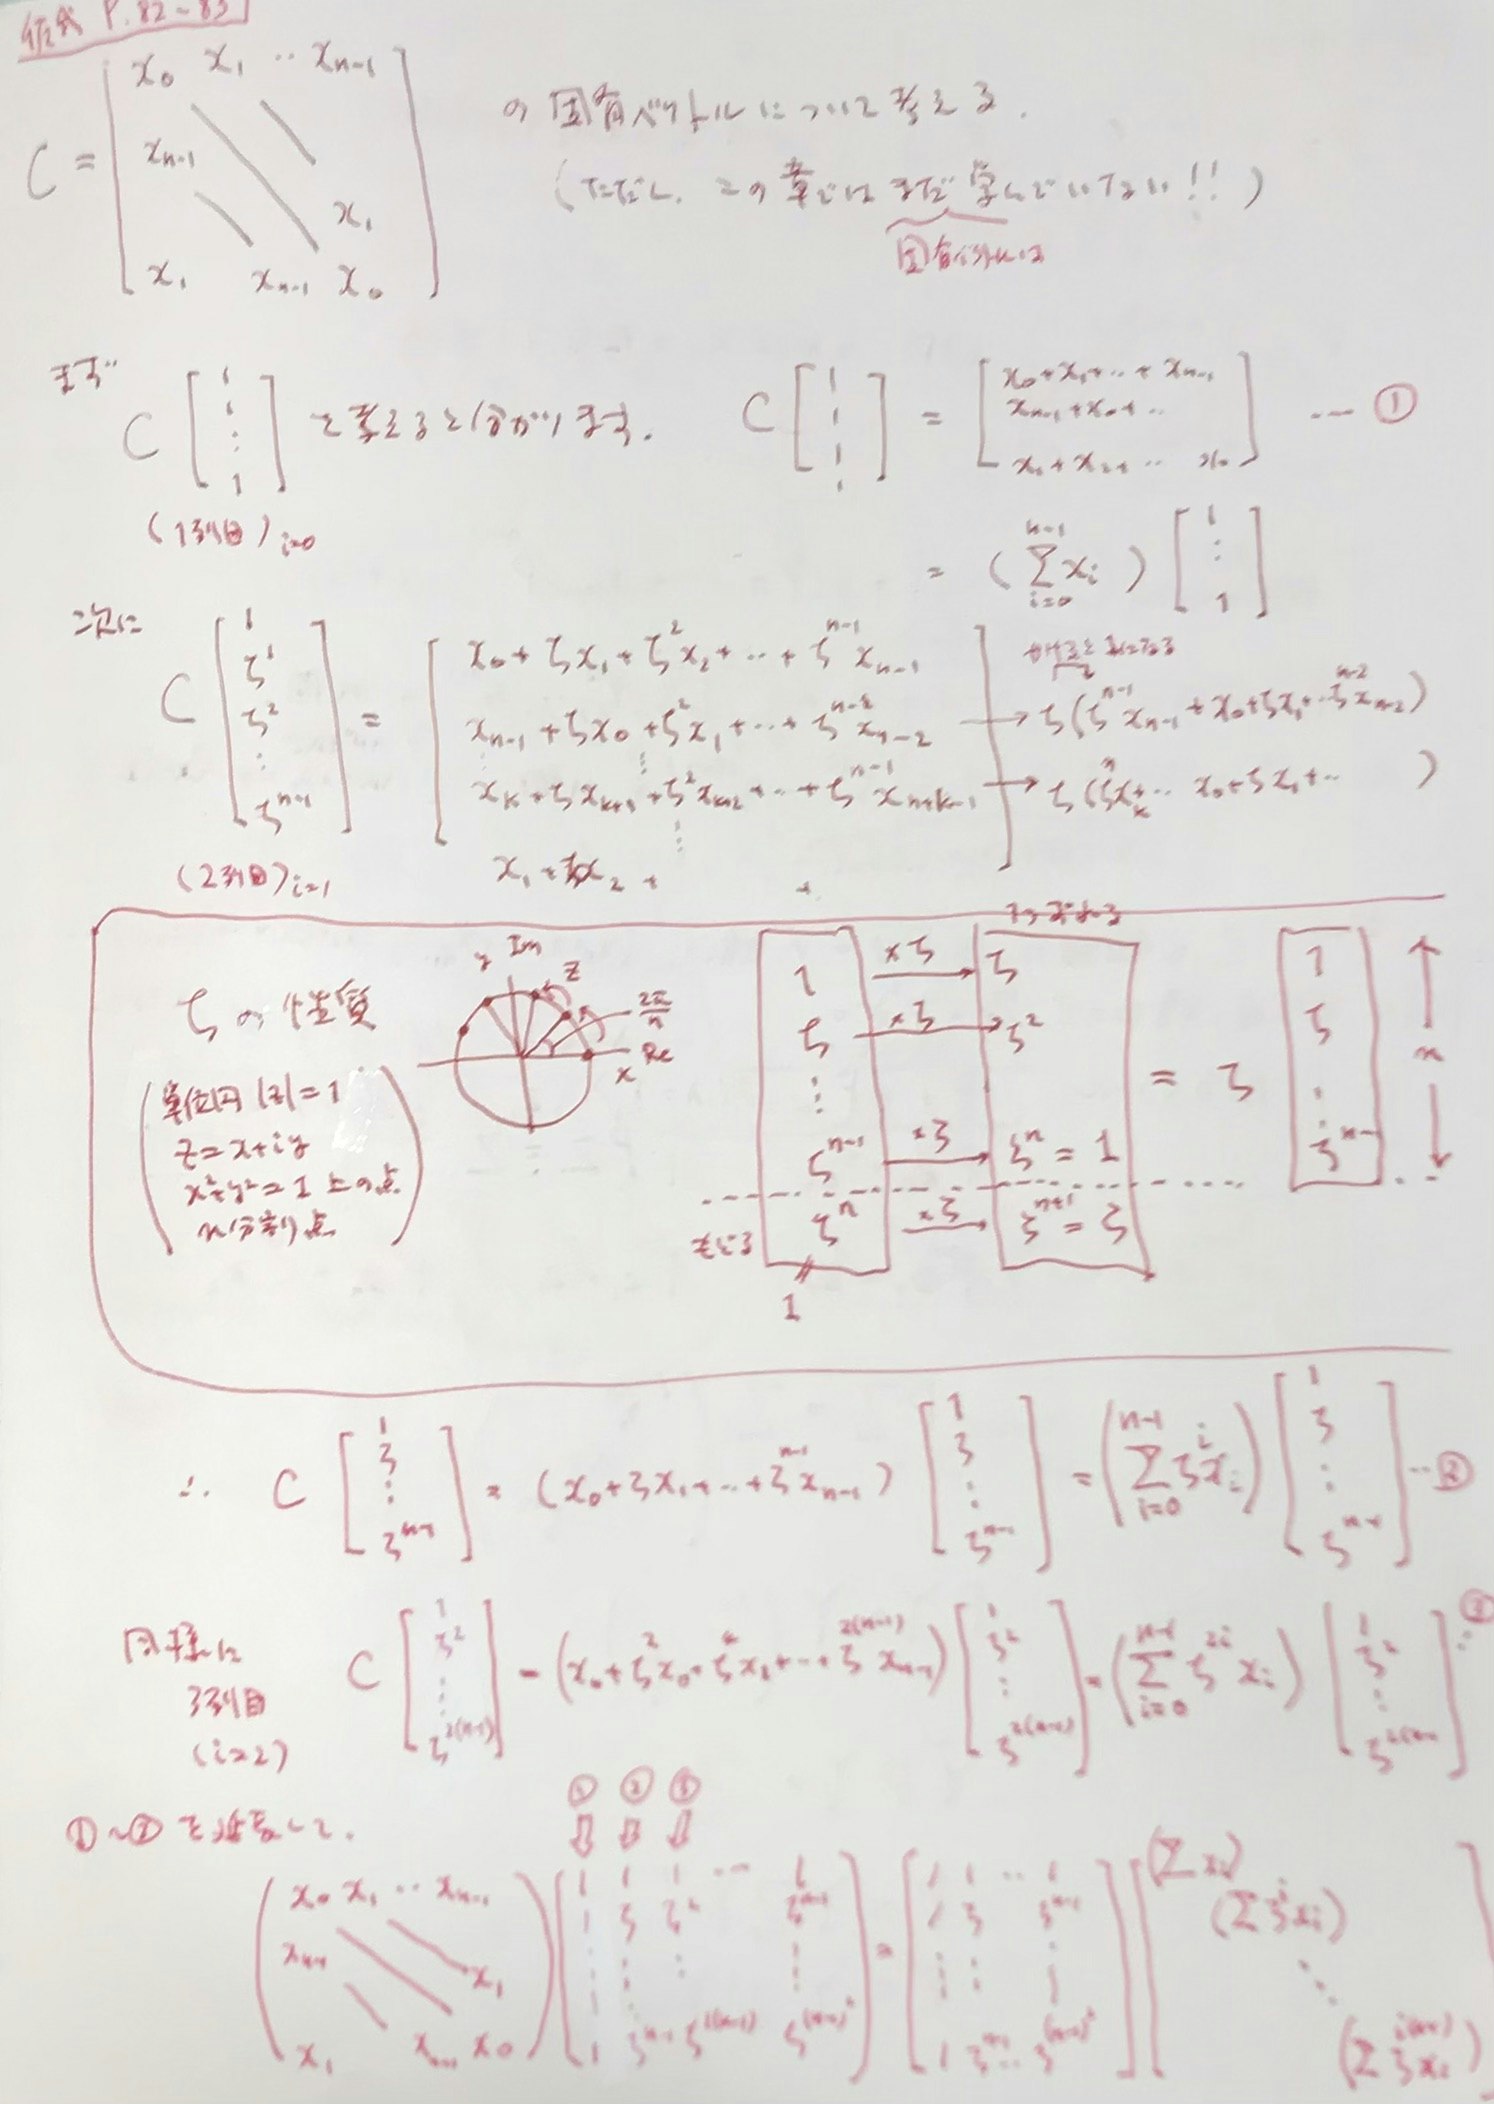 佐武 P.82~83
C = [ x₀ x₁ ‥ xₙ₋₁ / xₙ₋₁ x₁ / x₁ xₙ₋₁ x₀ ] の固有ベクトルについて考える.
(ただし、この章ではまだ学んでいない!!)
固有ベクトルは
まず C [ 1 1 ⋮ 1 ] を考えると分かります. C [ 1 1 1 1 ] = [ x₀+x₁+‥+xₙ₋₁ / xₙ₋₁+x₀+‥ / x₁+x₂+‥ x₀ ] --- ①
(1列目) i=0
= ( Σ_{i=0}^{n-1} xᵢ ) [ 1 ⋮ 1 ]
次に C [ 1 ζ¹ ζ² ⋮ ζⁿ⁻¹ ] = [ x₀+ζx₁+ζ²x₂+‥+ζⁿ⁻¹xₙ₋₁
xₙ₋₁+ζx₀+ζ²x₁+‥+ζⁿ⁻²xₙ₋₂ → ζ(ζⁿ⁻¹xₙ₋₁+x₀+ζx₁+‥ζⁿ⁻²xₙ₋₂)
xₖ+ζxₖ₊₁+ζ²xₖ₊₂+‥+ζⁿ⁻¹xₙ₊ₖ₋₁ → ζ(ζⁿxₖ+‥ x₀+ζx₁+‥ )
x₁+ζx₂+ + ]
(2列目) i=1
ζの性質
y Im z 2π/n Re x
(単位円 |z|=1
z=x+iy
x²+y²=1 上の点
n分割点)
1つずれる
1 ×ζ → ζ
ζ ×ζ → ζ²
ζⁿ⁻¹ ×ζ → ζⁿ = 1
もどる ζⁿ ×ζ → ζⁿ⁺¹ = ζ
1
= ζ [ 1 ζ ⋮ ζⁿ⁻¹ ] n
∴ C [ 1 ζ ⋮ ζⁿ⁻¹ ] = (x₀+ζx₁+‥+ζⁿ⁻¹xₙ₋₁) [ 1 ζ ⋮ ζⁿ⁻¹ ] = ( Σ_{i=0}^{n-1} ζⁱxᵢ ) [ 1 ζ ⋮ ζⁿ⁻¹ ] ‥②
同様に
3列目
(i=2)
C [ 1 ζ² ⋮ ζ²⁽ⁿ⁻¹⁾ ] = (x₀+ζ²x₀+ζ⁴x₂+‥+ζ²⁽ⁿ⁻¹⁾xₙ₋₁) [ 1 ζ² ⋮ ζ²⁽ⁿ⁻¹⁾ ] = ( Σ_{i=0}^{n-1} ζ²ⁱxᵢ ) [ 1 ζ² ⋮ ζ²⁽ⁿ⁻¹⁾ ] ‥③
① ② ③
( x₀ x₁ ‥ xₙ₋₁ / xₙ₋₁ x₁ / x₁ xₙ₋₁ x₀ ) [ 1 1 1 ‥ 1 / 1 ζ ζ² ζⁿ⁻¹ / 1 ζⁿ⁻¹ ζ²⁽ⁿ⁻¹⁾ ζ⁽ⁿ⁻¹⁾² ] = [ 1 1 ‥ 1 / 1 ζ ζⁿ⁻¹ / 1 ζⁿ⁻¹‥ ζ⁽ⁿ⁻¹⁾² ] [ (Σxᵢ) (Σζⁱxᵢ) ⋱ (Σζⁱ⁽ⁿ⁻¹⁾xᵢ) ]